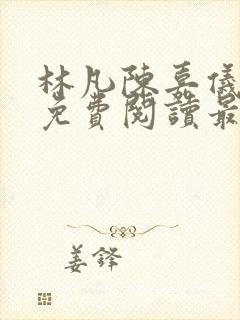 林凡陳嘉儀
免費閱讀最
姜鋒